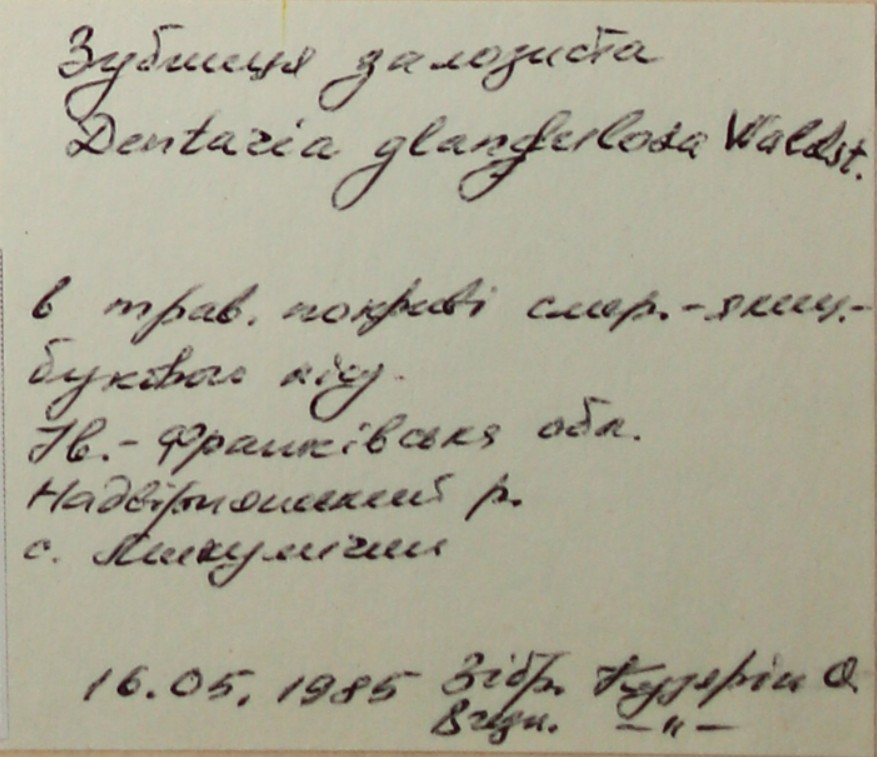 Зубниця залозиста
Dentaria glandulosa Waldst.
в трав. покриві смер.-ялиц.-
букового лісу
Ів.-Франківська обл.
Надвірнянський р.
с. Микуличин
16.05.1985 Зібр. Кузярін О.
Визн. –„–